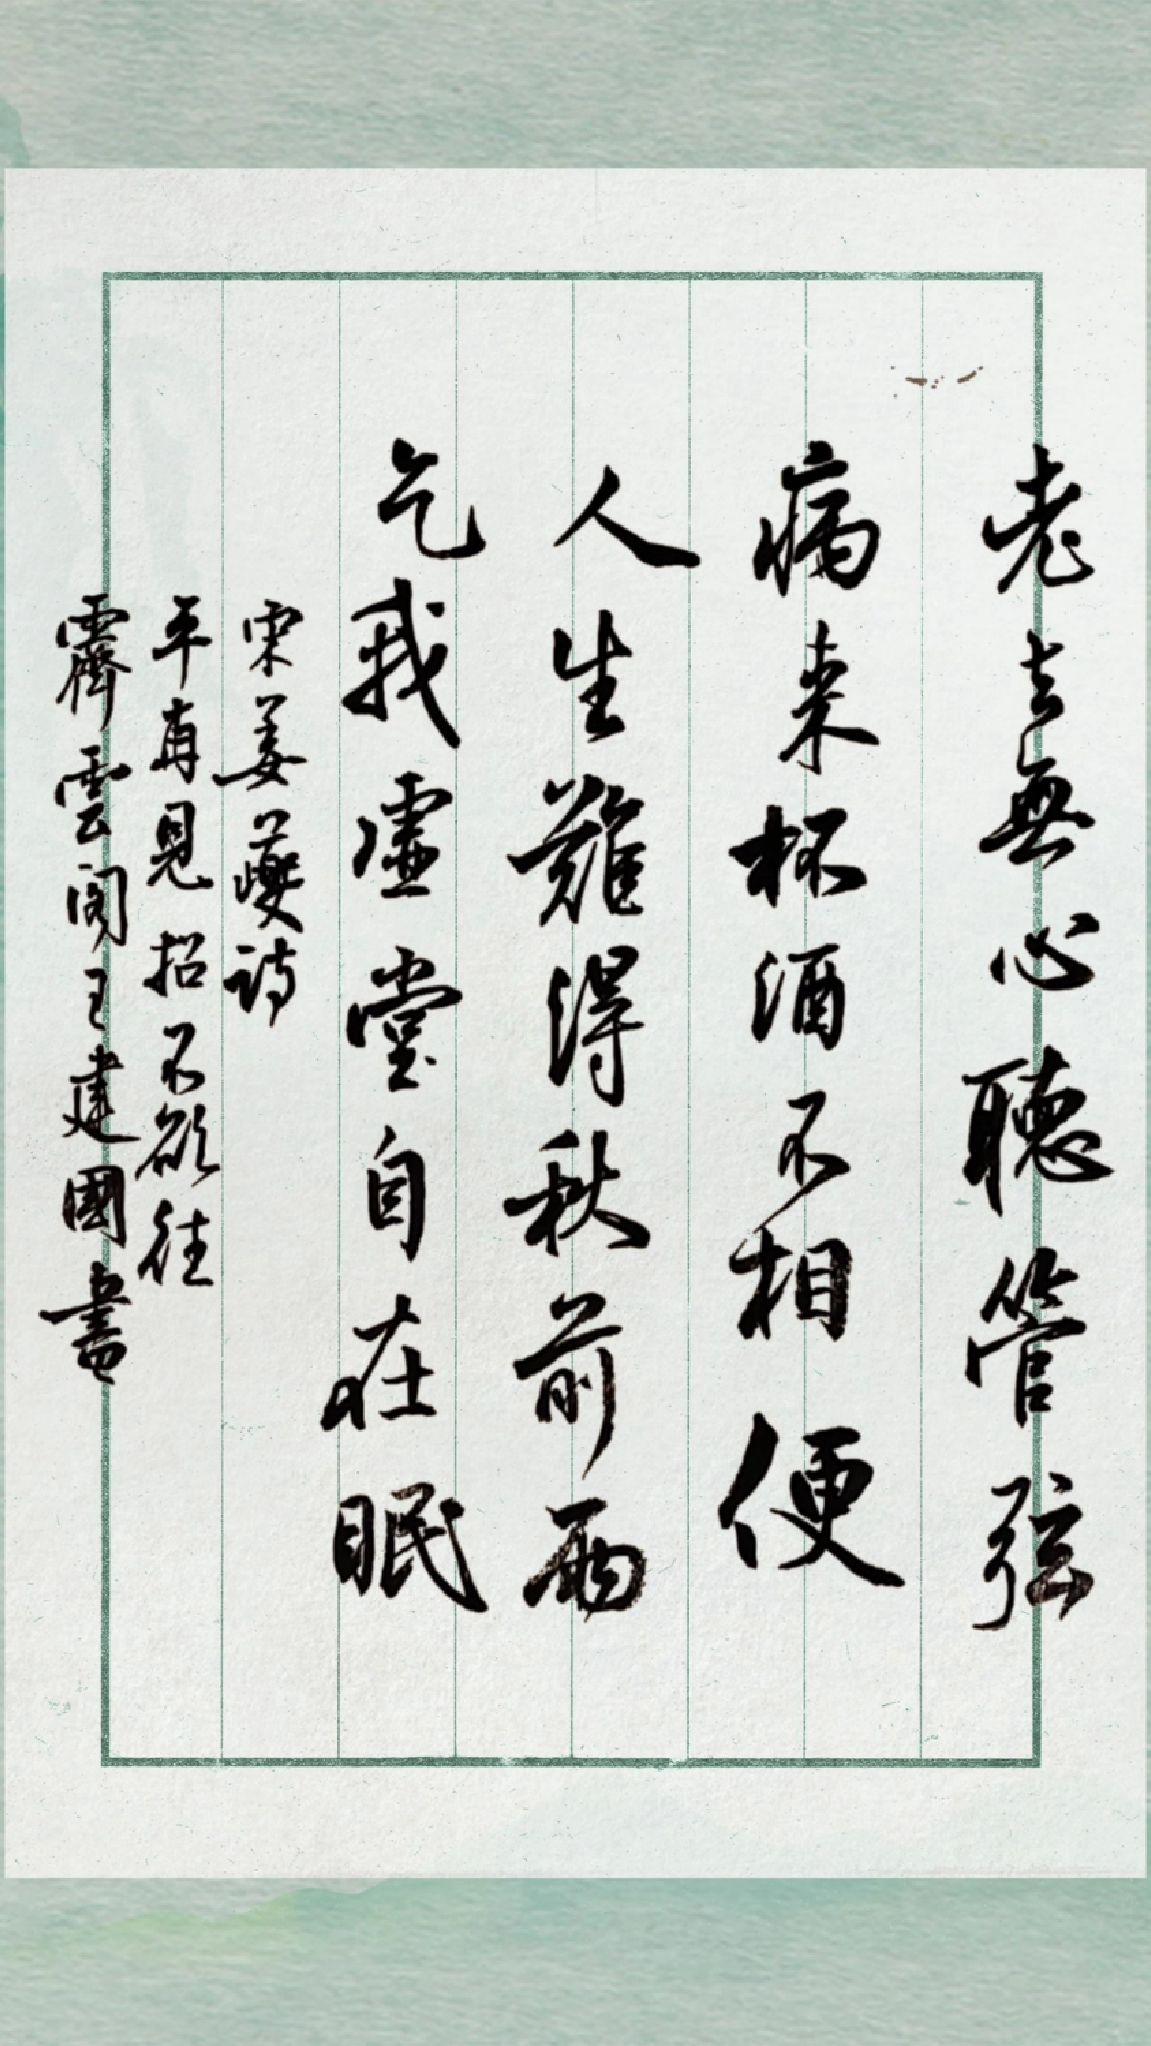 老去無心聽管弦
病来杯酒不相便
人生難得秋前雨
乞我虛堂自在眠
宋姜夔詩
平甫見招不欲往
霽雲閣王建國書